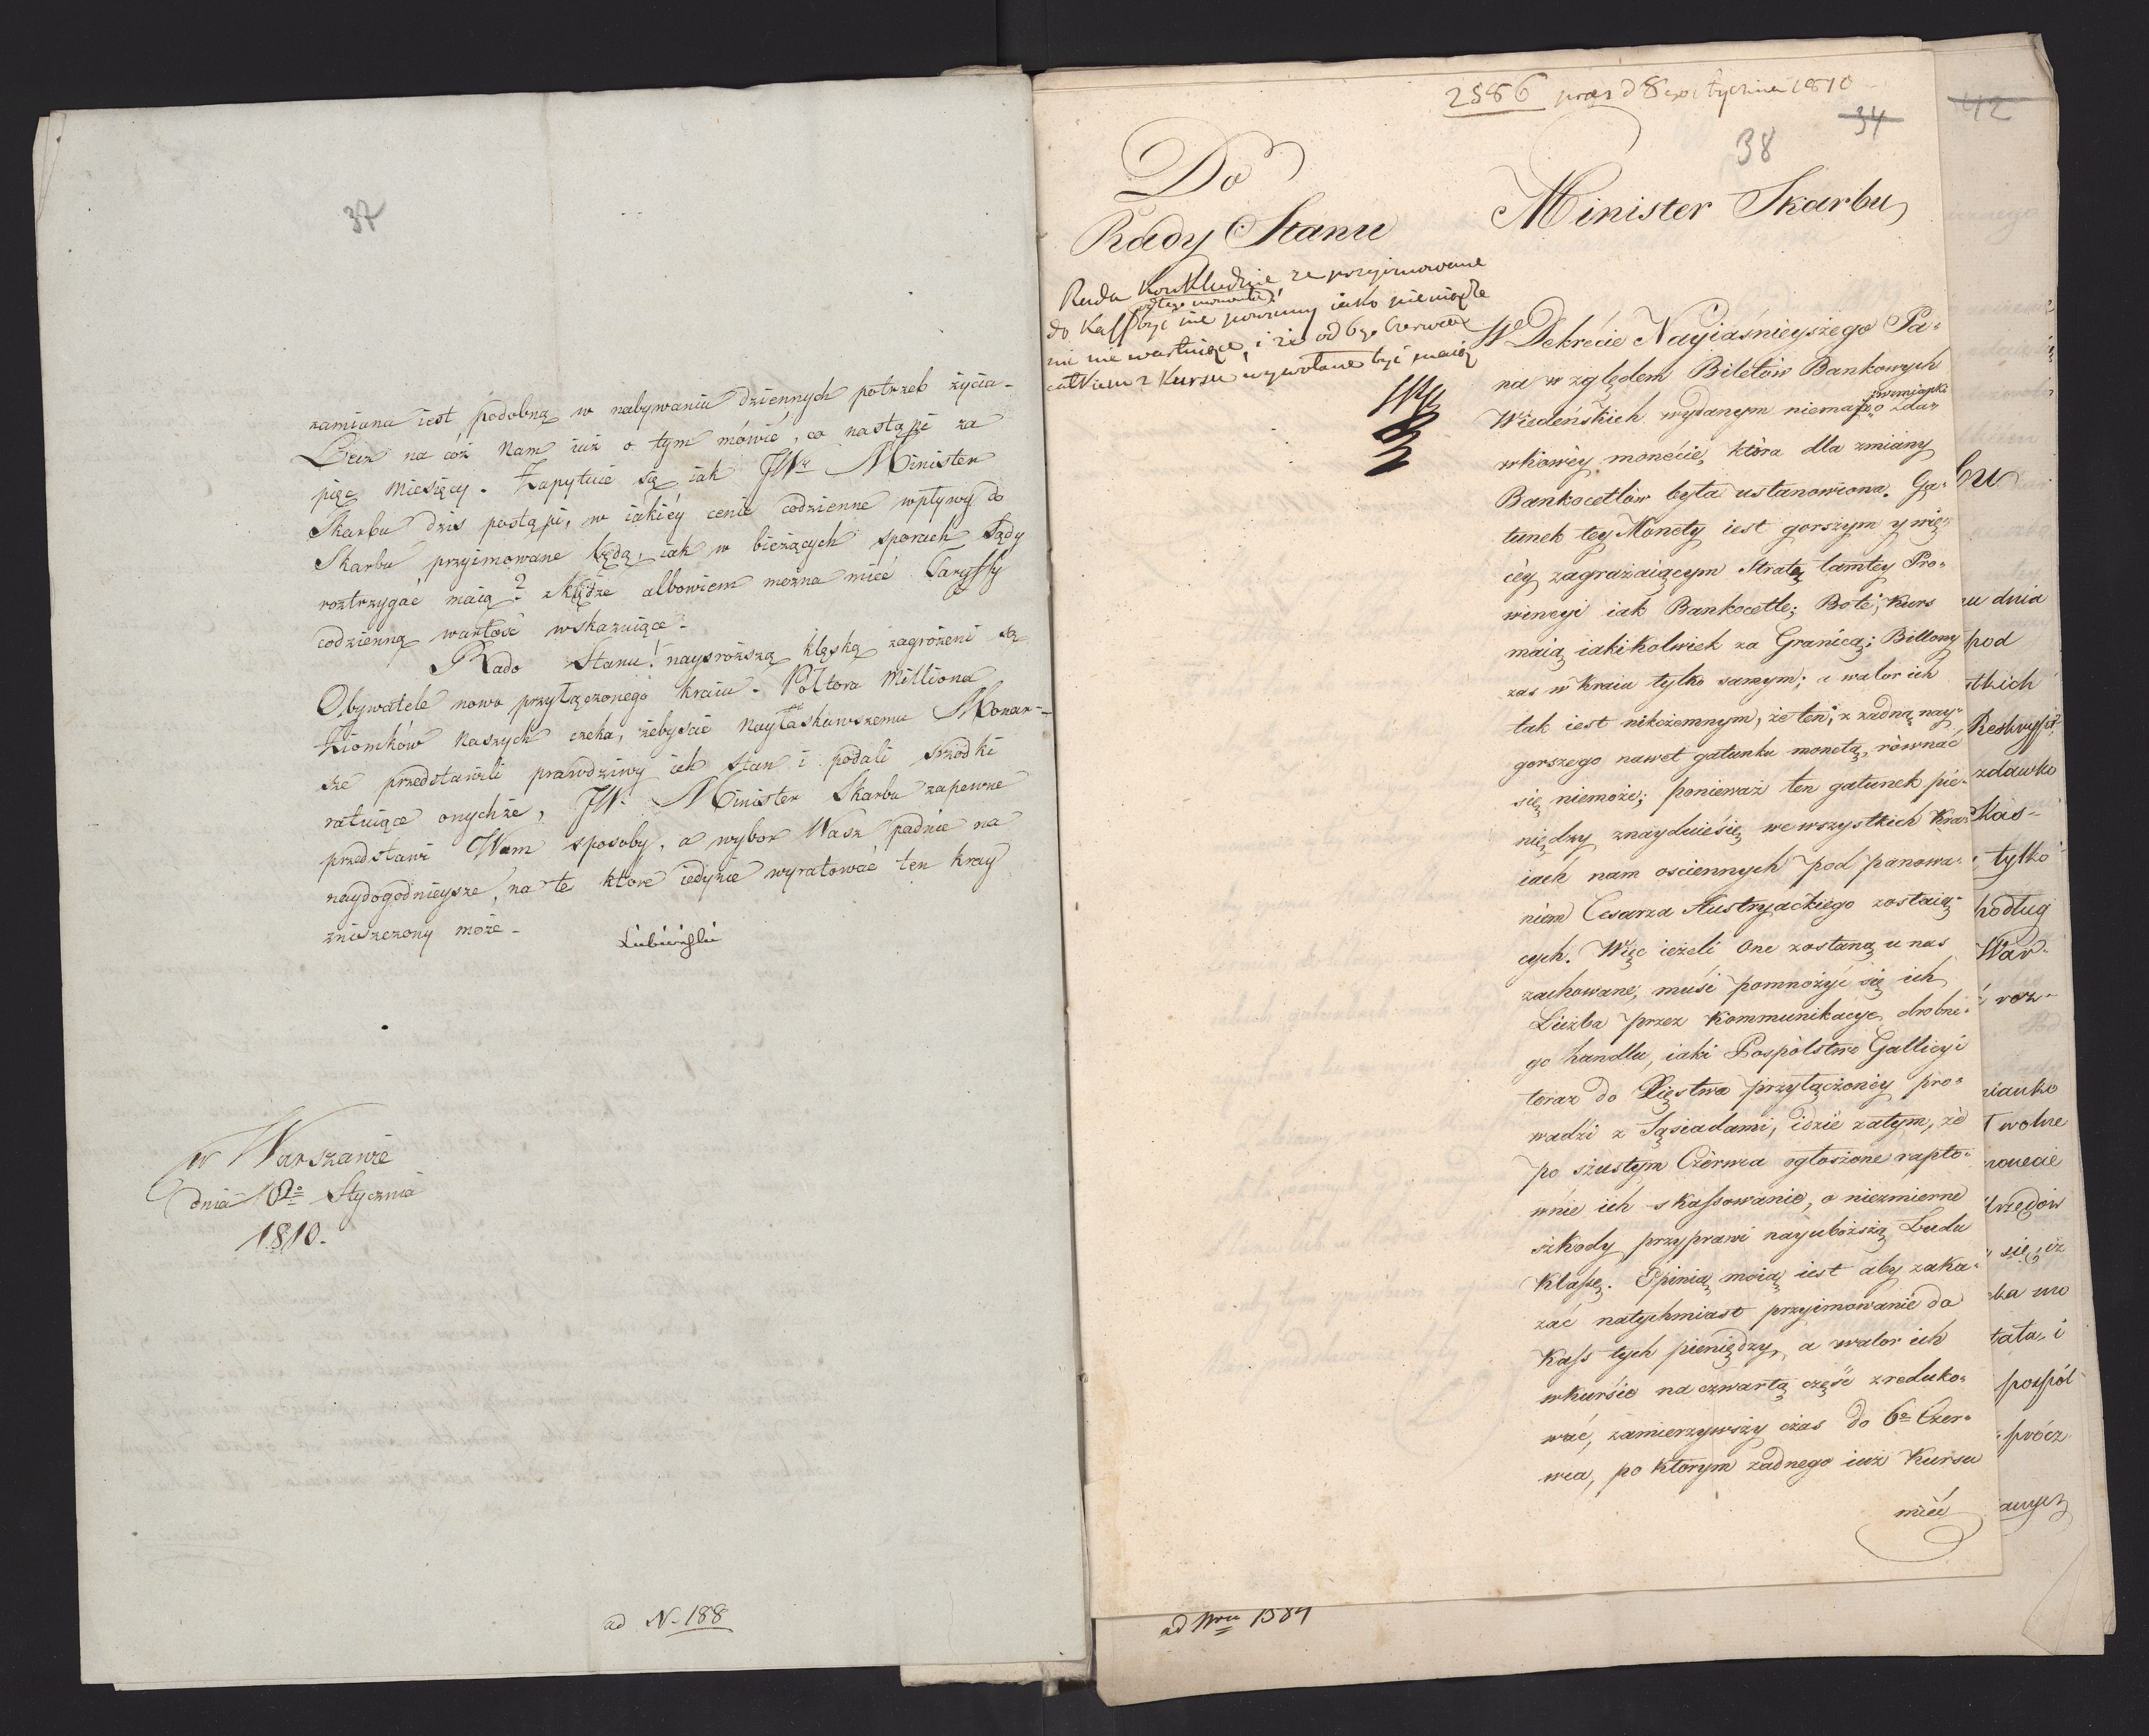 37
zamiana iest podobną w nabywaniu dziennych potrzeb życia.
Lecz na cóż nam iuż o tym mówić, co nastąpi za
pięc Miesięcy. Zapytuie się iak JWy Minister
Skarbu dzis postąpi, w iákiéy cenie codzienne wpływy do
Skarbu przyimowane będą, iak w bieżących sporach Sądy
roztrzygać maią? zkądże albowiem można mieć Taryffy
codzienną wartość wskazuiące.
Rado Stanu! naysroższą klęską zagrożeni są
Obywatele nowo przyłączonego kraiu. Półtora Milliona
Ziomków Naszych czeka, żebyście Nayłaskawszemu Monar-
sze przedstawili prawdziwy ich Stan i podali srzodki
ratuiące onychże, JW. Minister Skarbu zapewne
przedstawi Wam sposoby, a wybor Wasz padnie na
naydogodnieysze, na te ktore iedynie wyratować ten kray
zniszczony może.
Lubieński
w Warszawie
dnia 10o Stycznia
1810.
ad N. 188
2586 prez d 8 Stycznia 1810
34
38
42
Do
Rady Stanu
Minister Skarbu
Rada konkluduie, ze przyimowane
od tego momentu
do Kass być nie powinny iako pieniądze
nic nie wartuiące, i że od 6go Czerwca
całkiem z kursu wywołane być maią
W Dekrécie Nayiaśnieyszego Pa-
na względem Biletów Bankowych
Wiedeńskich wydanym niemasz wzmianki o zda-
wkowéy monécie, która dla zmiany
Bankocetlów była ustanowiona. Ga-
tunek tey Monety iest gorszym y wię-
céy zagrażaiącym Stratą tamtey Pro-
wincyi iak Bankocetle; Boté, kurs
maią iakikolwiek za Granicą; Billony
zas w Kraiu tylko samym; a walor ich
tak iest nikczemnym, że ten, z żadną nay-
gorszego nawet gatunku monetą, równać
się niemoże; ponieważ ten gatunek pie-
niędzy znayduiesię we wszystkich Kra-
iach nam osciennych pod panowa-
niem Cesarza Austryackiego zostaią-
cych. Więc ieżeli One zostaną u nas
zachowane, musi pomnożyć się ich
Liczba przez Kommunikacye drobne-
go handlu, iaki Pospólstwo Gallicyi
teraz do Xięstwa przyłączonéy pro-
wadzi z Sąsiadami, idzie zatym, że
po szustym Czérwca ogłoszone rapto-
wnie ich skassowanie, o niezmierne
szkody przyprawi nayuboższą Ludu
Klassę. Opinią moią iest aby zaka-
zać natychmiast przyimowanie do
Kass tych pieniędzy, a walor ich
wkursie na czwartą część zreduko-
wać, zamierzywszy czas do 6o Czer-
wca, po ktorym żadnego iuż Kursu
mieć
bu
nu dnia
pod
stkich
Reskrypt
zdawko
Kas-
tylko
podług
War-
rozr-
mianko
wolne
monecie
Urzędów
się iż
tała, i
pospól
prócz
ad Nru 1584